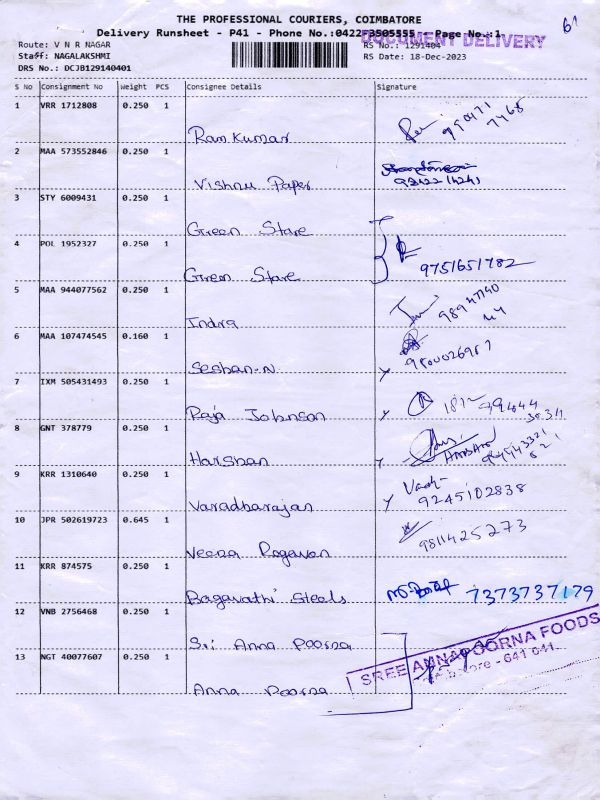 THE PROFESSIONAL COURIERS, COIMBATORE
61
Delivery Runsheet - P41 - Phone No.:0422-3505555 - Page No.:1
DOCUMENT DELIVERY
Route: V N R NAGAR
RS No.: 1291404
Staff: NAGALAKSHMI
RS Date: 18-Dec-2023
DRS No.: DCJB129140401
S No Consignment No Weight PCS Consignee Details Signature
1 VRR 1712808 0.250 1
Ram Kumar
2 MAA 573552846 0.250 1
Vishnu Paper
3 STY 6009431 0.250 1
Green Stare
4 POL 1952327 0.250 1
Green Stare 9751651782
5 MAA 944077562 0.250 1
Indra
6 MAA 107474545 0.160 1
Seshan-N
7 IXM 505431493 0.250 1
Raja Johnson
8 GNT 378779 0.250 1
Harshan
9 KRR 1310640 0.250 1
Varadharajan 9245102838
10 JPR 502619723 0.645 1
Veena Ragavan 9811425273
11 KRR 874575 0.250 1
Bagavathi Steels 7373737179
12 VNB 2756468 0.250 1
Sri Anna Poorna
13 NGT 40077607 0.250 1
Anna Poorna
SREE ANNAPOORNA FOODS
Coimbatore - 641 041.